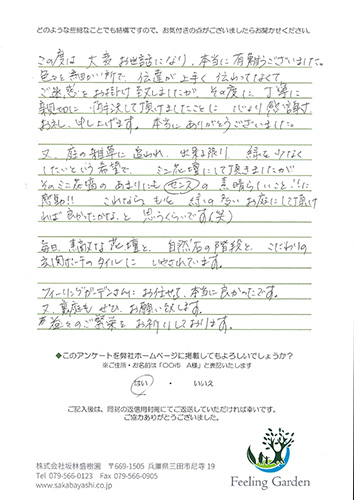 どのような些細なことでも結構ですので、お気付きの点がございましたらお聞かせください。
この度は 大変お世話になり、本当に有難うございました。
色々と細かい所で、伝達が上手く伝わってなくて
ご迷惑をお掛け致しましたが、その度に、丁寧に
親切に 解決して頂けましたことに 心より感謝
お礼、申し上げます。本当にありがとうございました。
又、庭の雑草に追われ、出来る限り 緑を少なく
したいという希望で、ミニ花壇にして頂きましたが
そのミニ花壇のあまりにもセンスの素晴らしいことに
感動!! これならもっと緑の多いお庭にして頂け
れば良かったかなと思うくらいです(笑)
毎日、素敵な花壇と、自然石の階段と こだわりの
玄関ポーチのタイルに いやされています。
フィーリングガーデンさんにお任せして、本当に良かったです。
又、裏庭も ぜひ、お願い致します。
益々のご繁栄を お祈りしております。
◆このアンケートを弊社ホームページに掲載してもよろしいでしょうか?
※ご住所・お名前は「○○市 A様」と表記いたします
はい ・ いいえ
ご記入後は、同封の返信用封筒にてご返送していただければ幸いです。
ご協力ありがとうございました。
株式会社坂林盛樹園 〒669-1505 兵庫県三田市尼寺 19
Tel 079-566-0123 Fax 079-566-0905
www.sakabayashi.co.jp
Feeling Garden